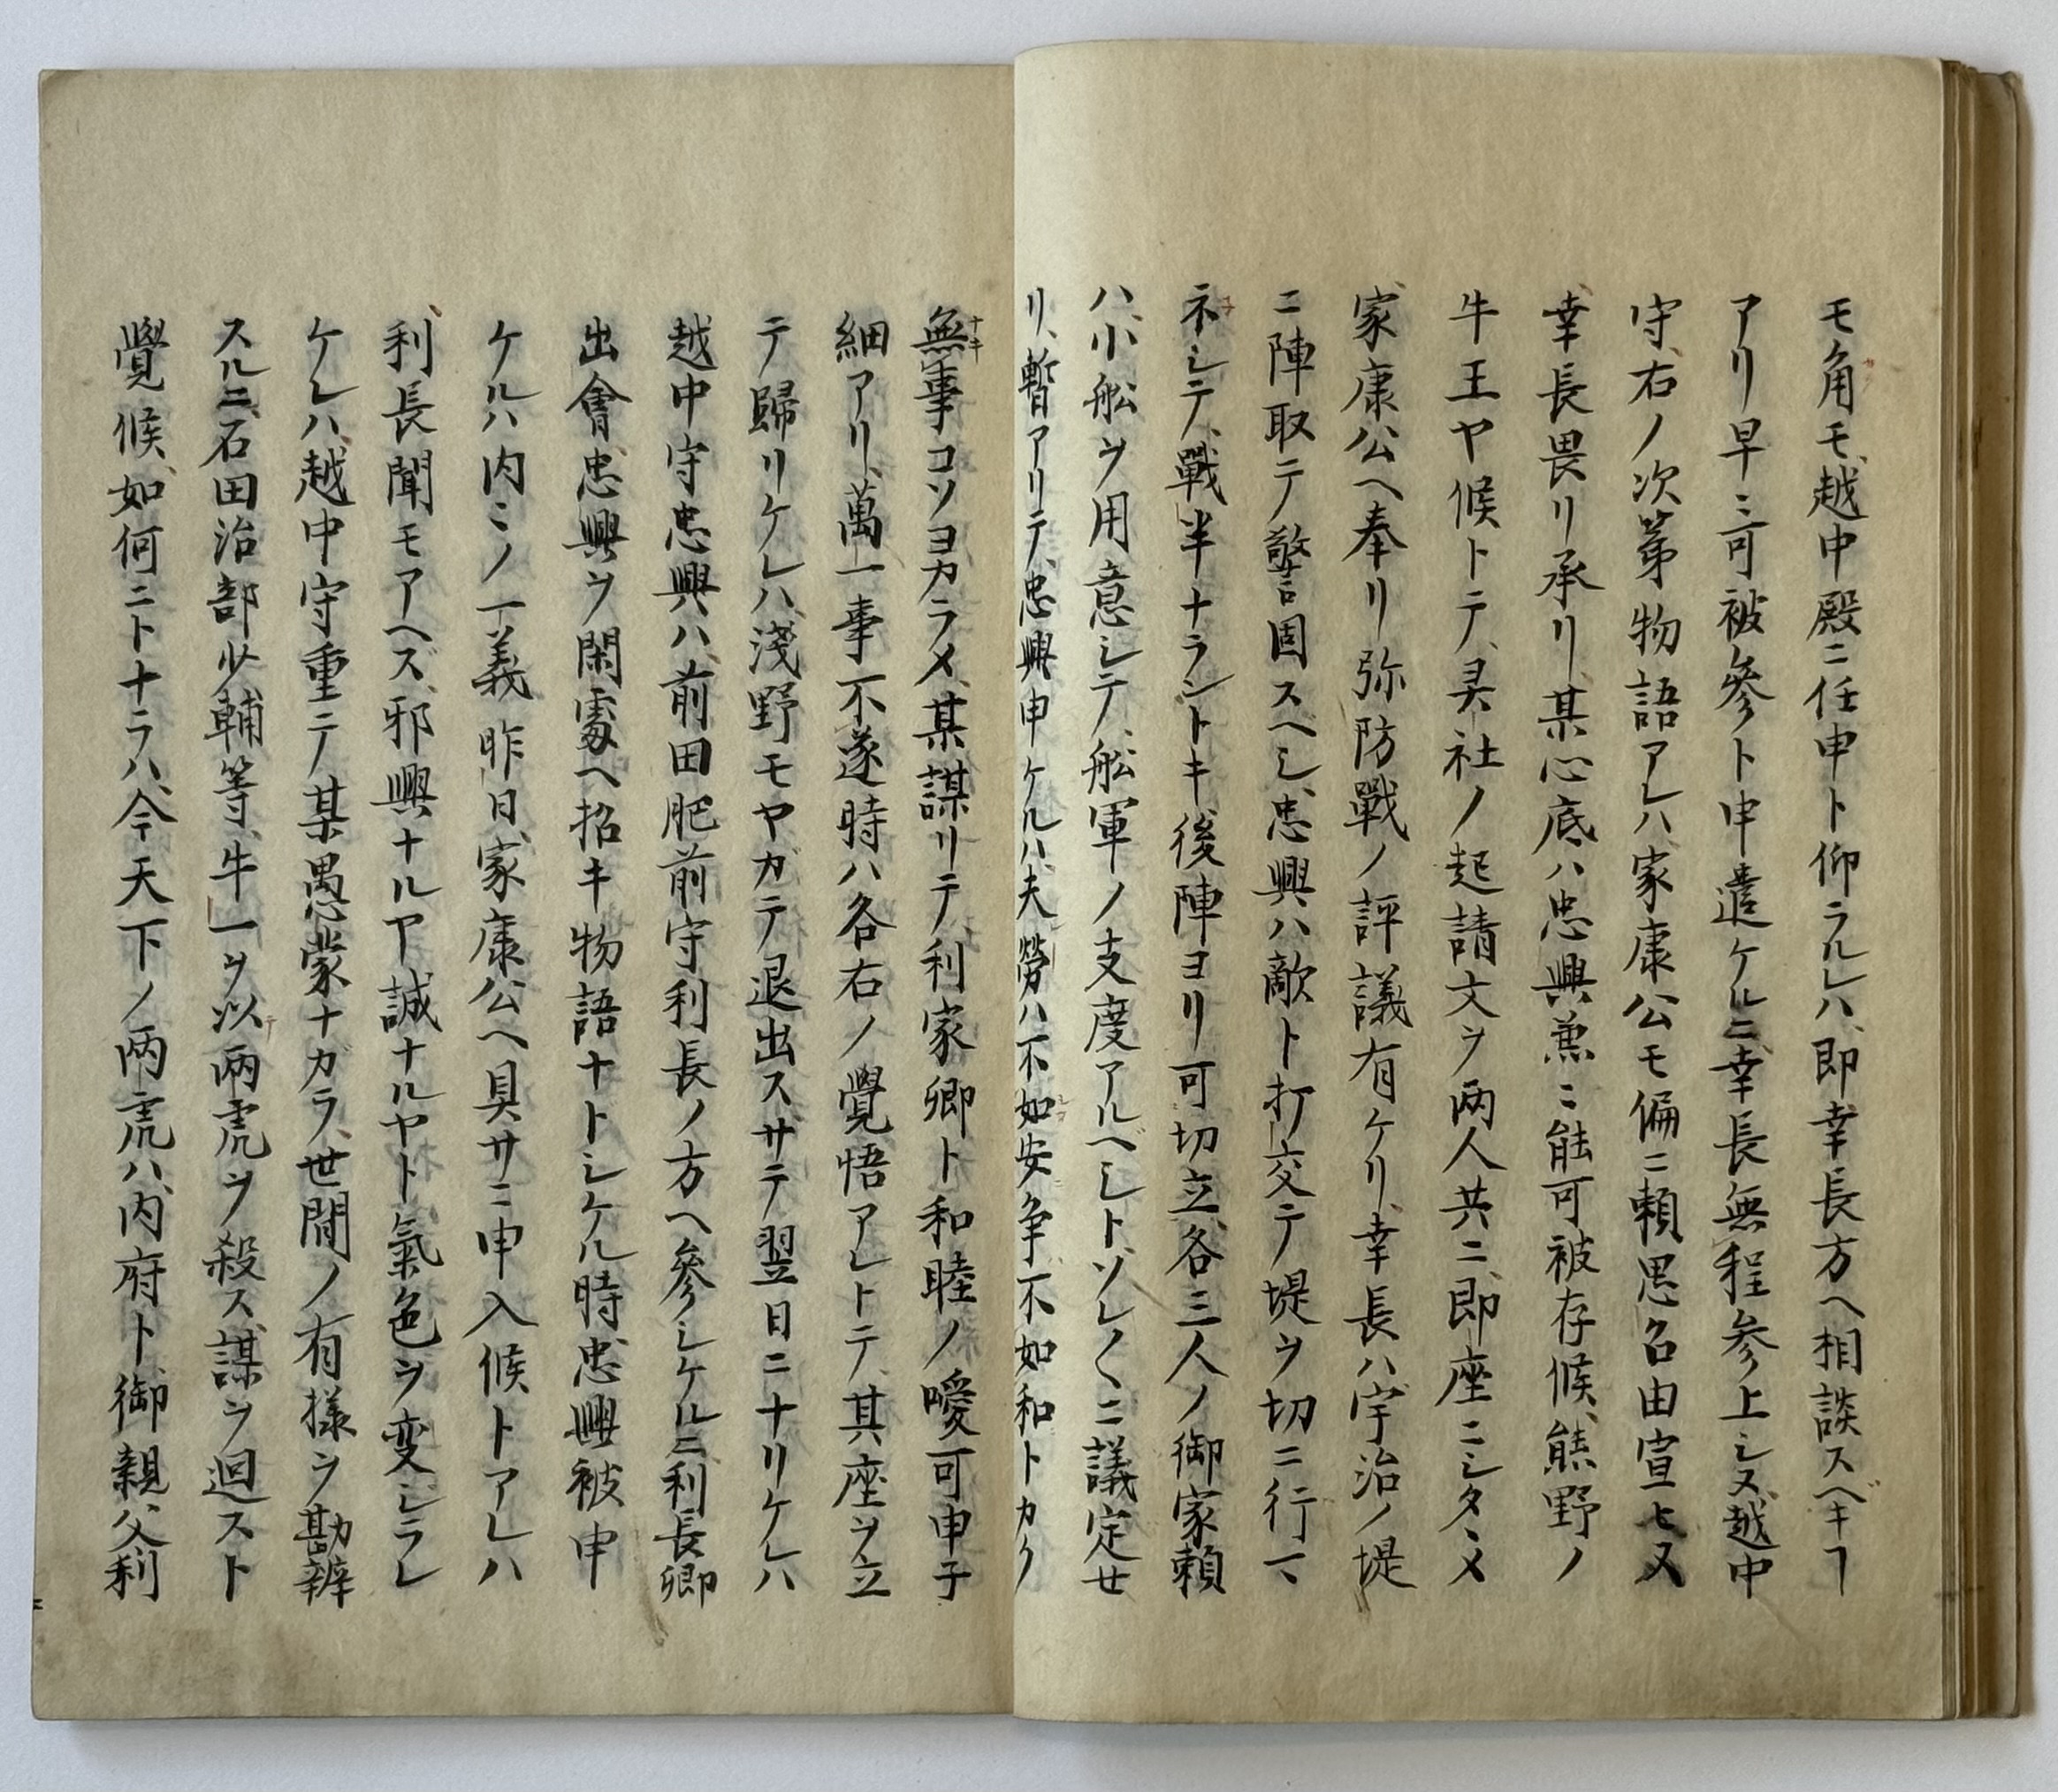 モ角モ越中殿ニ任申ト仰ラルレハ、即幸長方ヘ相談スベキヿ
アリ早々可被參ト申遣ケルニ幸長無程参上シヌ、越中
守、右ノ次第物語アレハ、家康公モ偏ニ頼思召由宣ヒヌ
幸長畏リ承リ、某心底ハ忠興兼々能可被存候、熊野ノ
牛王ヤ候トテ、其社ノ起請文ヲ両人共ニ即座ニシタヽメ
家康公ヘ奉リ弥防戰ノ評議有ケリ、幸長ハ宇治ノ堤
ニ陣取テ警固スヘシ、忠興ハ敵ト打交テ堤ヲ切ニ行マ
ネシテ、戰半ナラントキ後陣ヨリ可切立、各三人ノ御家頼
ハ、小船ヲ用意シテ、船軍ノ支度アルベシトソレ〱ニ議定セ
リ、暫アリテ、忠興申ケルハ、夫勞ハ不如安、争不如和トカク
無事コソヨカラメ、某謀リテ、利家卿ト和睦ノ噯可申子
細アリ、萬一事不遂時ハ各右ノ覺悟アレトテ、其座ヲ立
テ歸リケレハ、淺野モヤカテ退出スサテ翌日ニナリケレハ
越中守忠興ハ、前田肥前守利長ノ方ヘ參シケルニ、利長卿
出會、忠興ヲ閑處ヘ招キ物語ナトシケル時、忠興被申
ケルハ内々ノ一義昨日、家康公ヘ具サニ申入候トアレハ
利長聞モアヘズ、邪興ナルヤ誠ナルヤト氣色ヲ変シラレ
ケレハ、越中守重テ某愚蒙ナガラ、世間ノ有樣ヲ勘辨
スルニ、石田治部少輔等、牛一ヲ以両虎ヲ殺ス、謀ヲ廻スト
覺候、如何ニトナラハ、今天下ノ両虎ハ、内府ト、御親父利